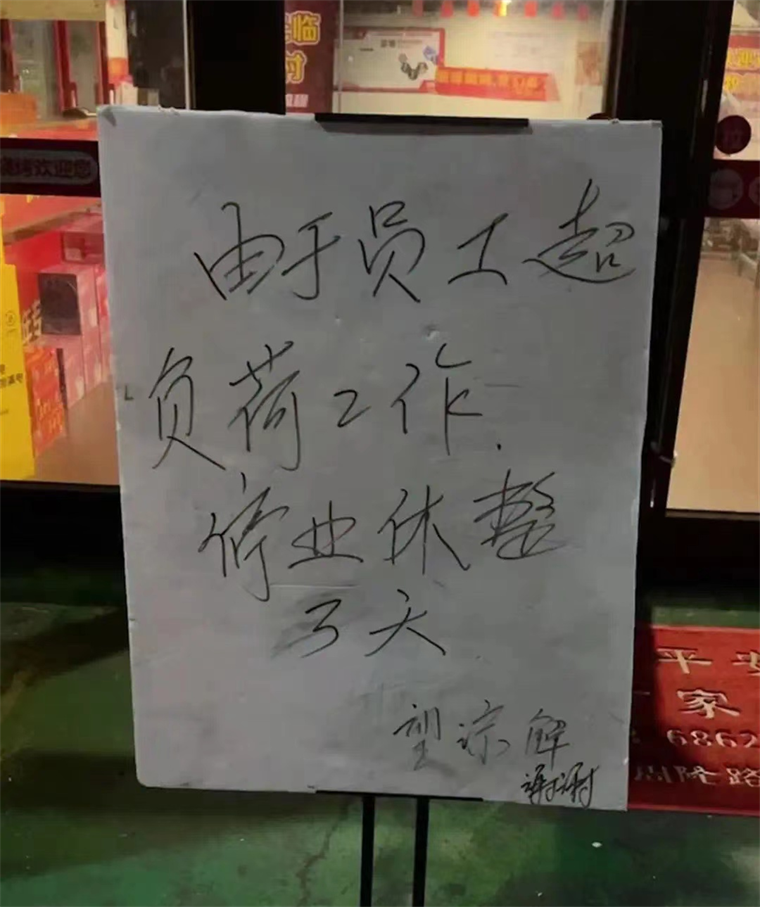 由于员工超
负荷工作.
停业休整
3天
望谅解
谢谢
烧烤欢迎您
平安
家
6862
周隆路